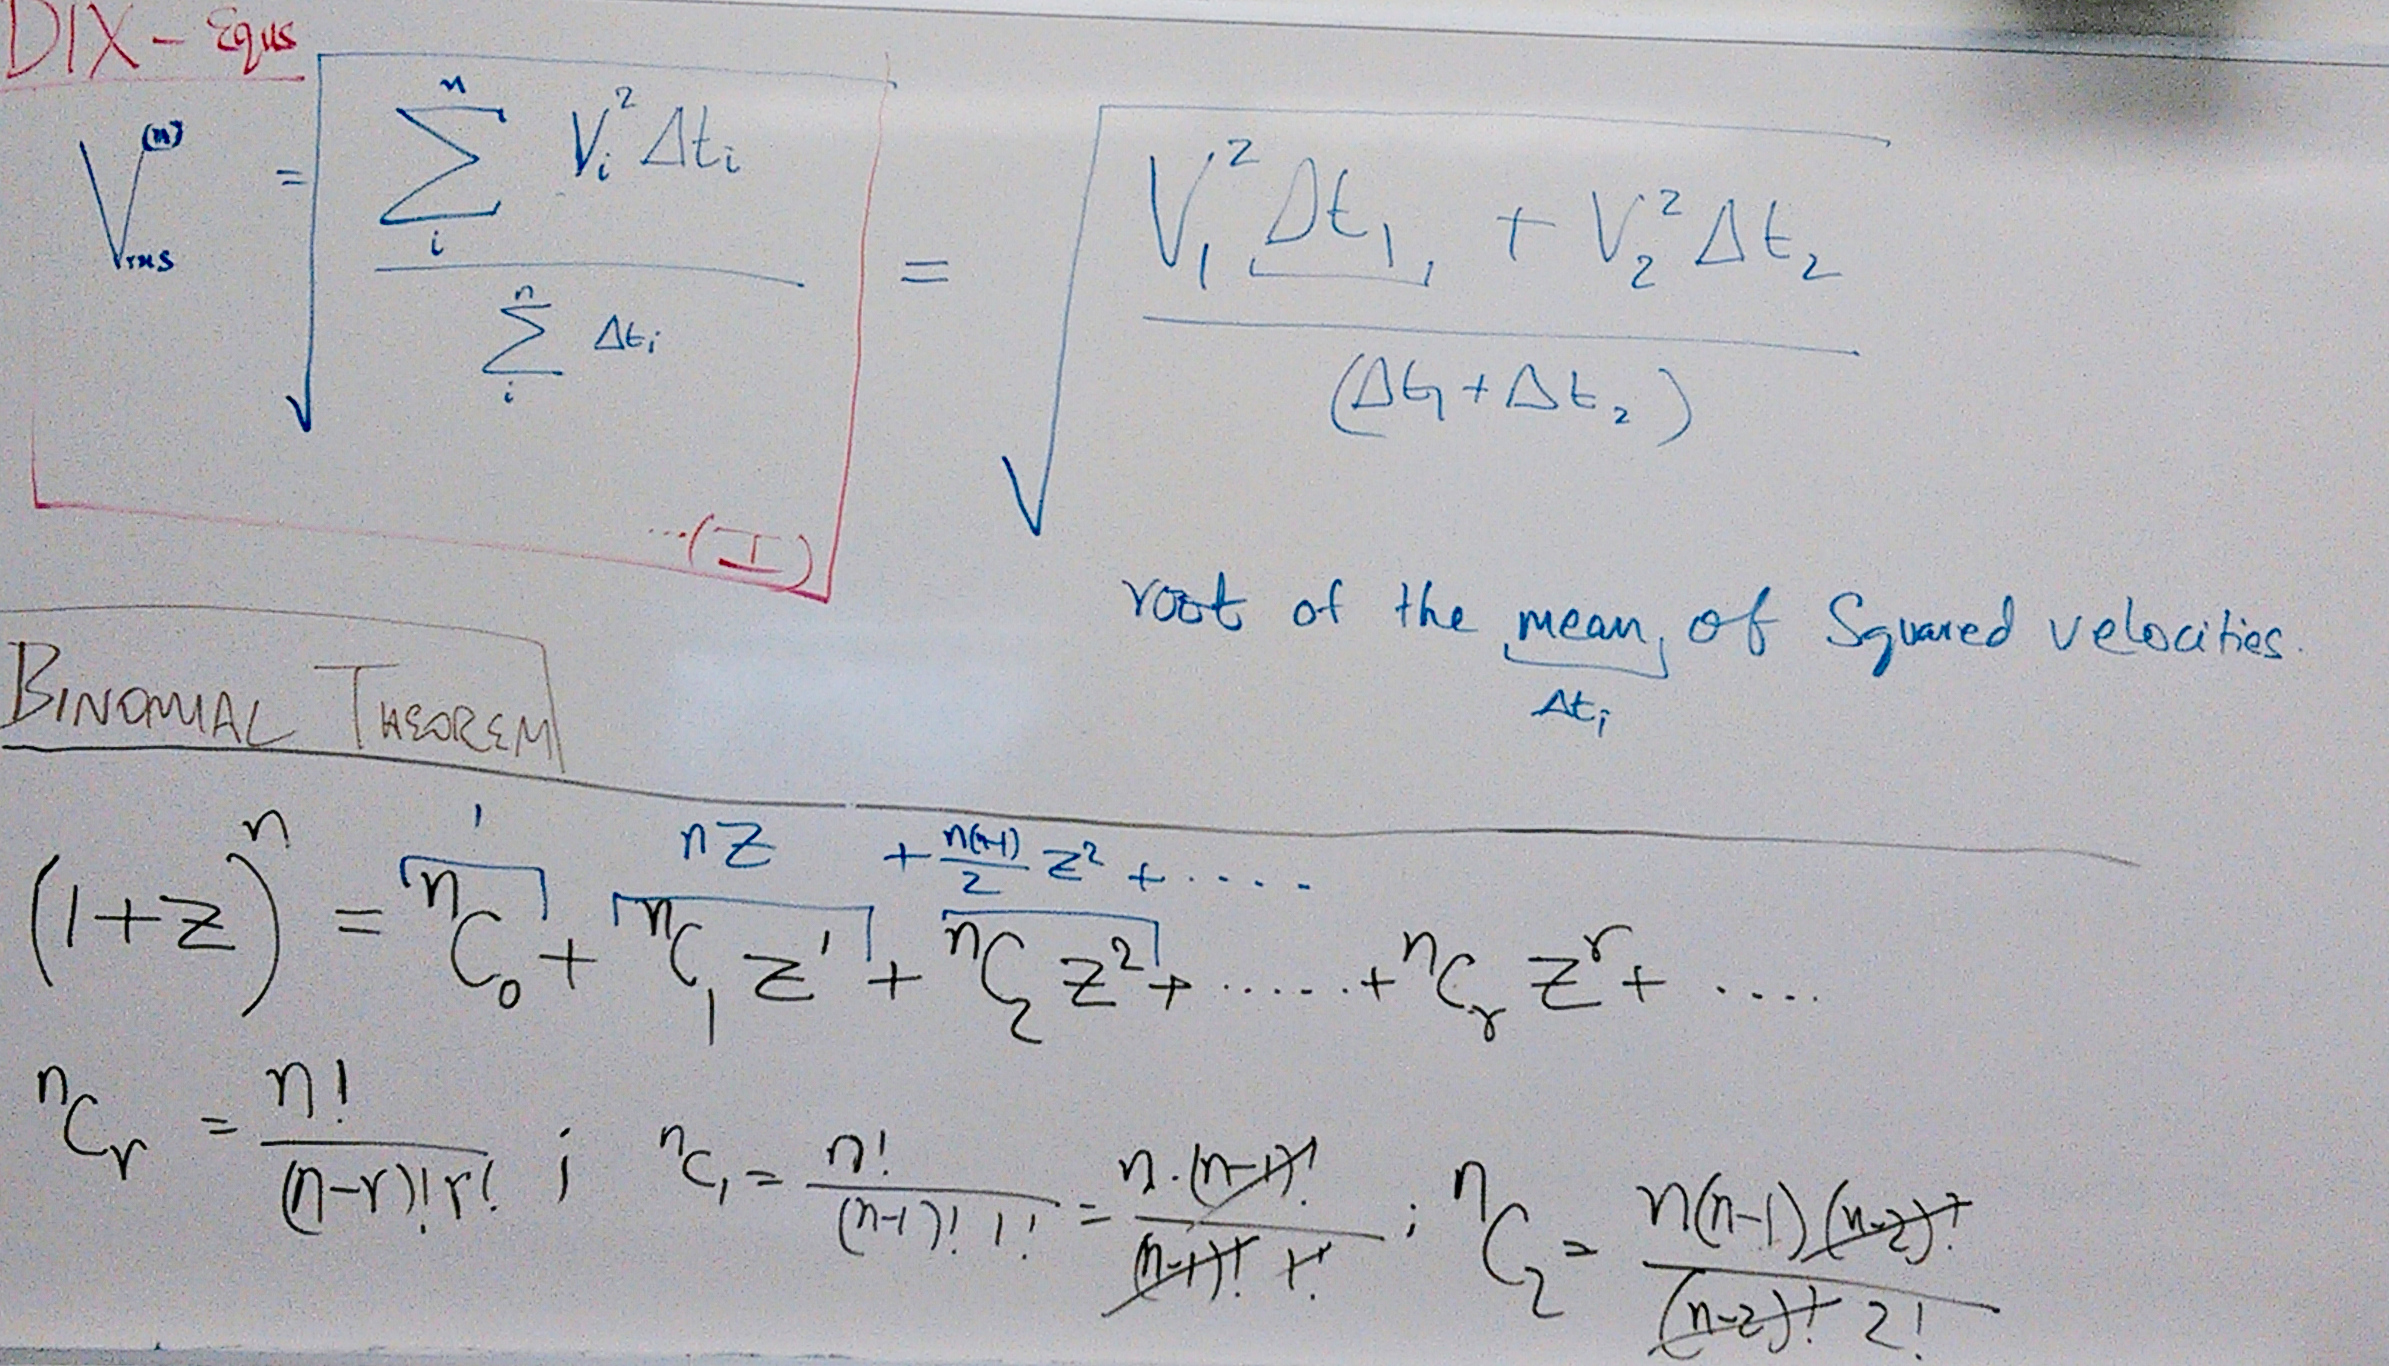 DIX - Equs
V_rms^(n) = √( Σ_i^n V_i² Δt_i / Σ_i^n Δt_i ) = √( (V_1² Δt_1 + V_2² Δt_2) / (Δt_1 + Δt_2) )
...(I)
root of the mean of Squared velocities.
Δt_i
BINOMIAL THEOREM
1 nz + n(n-1)/2 z² + ....
(1+z)^n = ^nC_0 + ^nC_1 z^1 + ^nC_2 z² + ...... + ^nC_r z^r + ....
^nC_r = n!/((n-r)! r!) ; ^nC_1 = n!/((n-1)! 1!) = n.(n-1)!/((n-1)! 1!) ; ^nC_2 = n(n-1)(n-2)!/((n-2)! 2!)